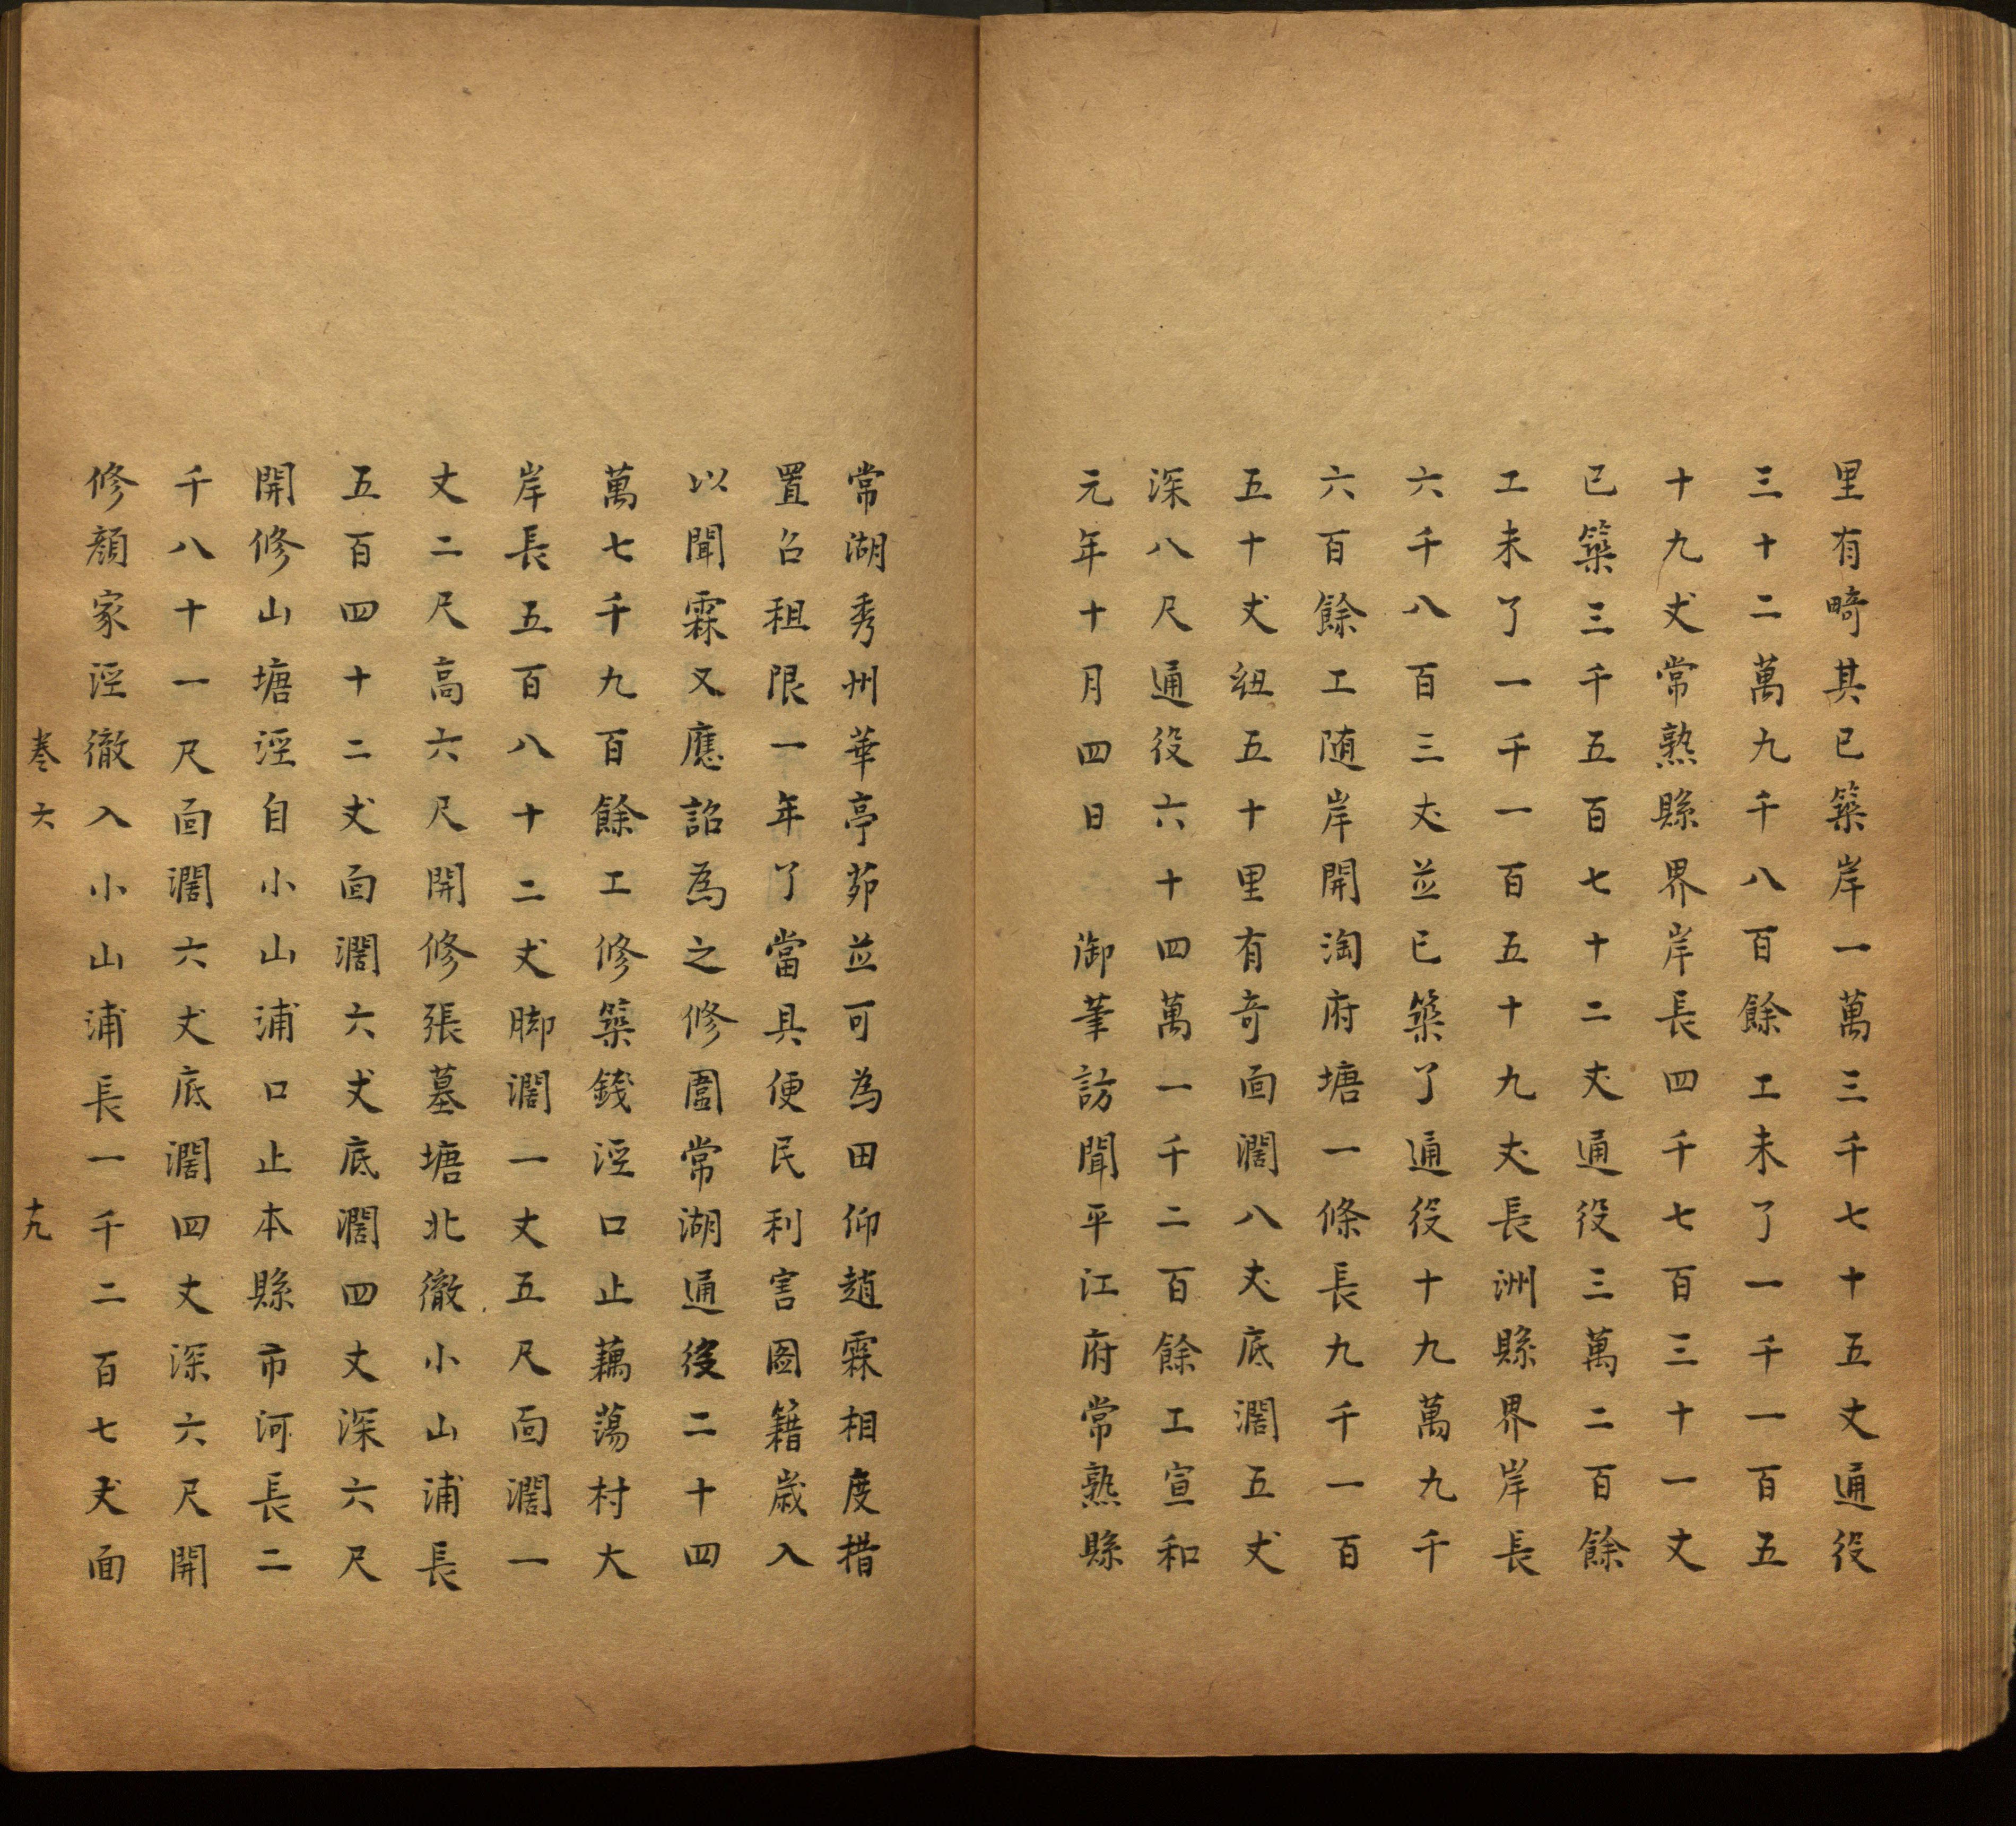 里有畸其已築岸一萬三千七十五丈通役
三十二萬九千八百餘工未了一千一百五
十九丈常熟縣界岸長四千七百三十一丈
已築三千五百七十二丈通役三萬二百餘
工未了一千一百五十九丈長洲縣界岸長
六千八百三丈並已築了通役十九萬九千
六百餘工随岸開淘府塘一條長九千一百
五十丈紐五十里有奇面濶八丈底濶五丈
深八尺通役六十四萬一千二百餘工宣和
元年十月四日　御筆訪聞平江府常熟縣
常湖秀州華亭茆並可為田仰趙霖相度措
置召租限一年了當具便民利害圖籍歲入
以聞霖又應詔為之修圍常湖通役二十四
萬七千九百餘工修築錢涇口止藕蕩村大
岸長五百八十二丈脚濶一丈五尺面濶一
丈二尺高六尺開修張墓塘北徹小山浦長
五百四十二丈面濶六丈底濶四丈深六尺
開修山塘涇自小山浦口止本縣市河長二
千八十一尺面濶六丈底濶四丈深六尺開
修顏家涇徹入小山浦長一千二百七丈面
卷六　十九